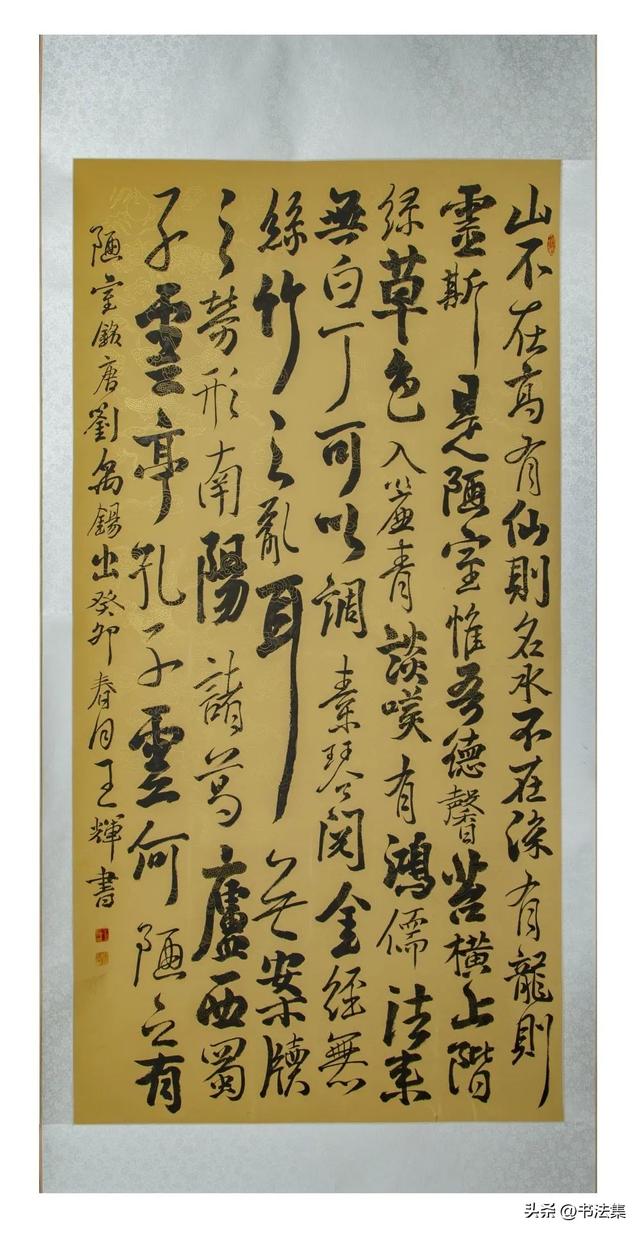 山不在高有仙則名水不在深有龍則
靈斯是陋室惟吾德馨苔橫上階
綠草色入簾青談咲有鴻儒往來
無白丁可以調素琴閱金經無
絲竹之亂耳无案牘
之勞形南陽諸葛廬西蜀
子雲亭孔子雲何陋之有
陋室銘唐劉禹錫出癸卯春月王輝書
头条 @书法集